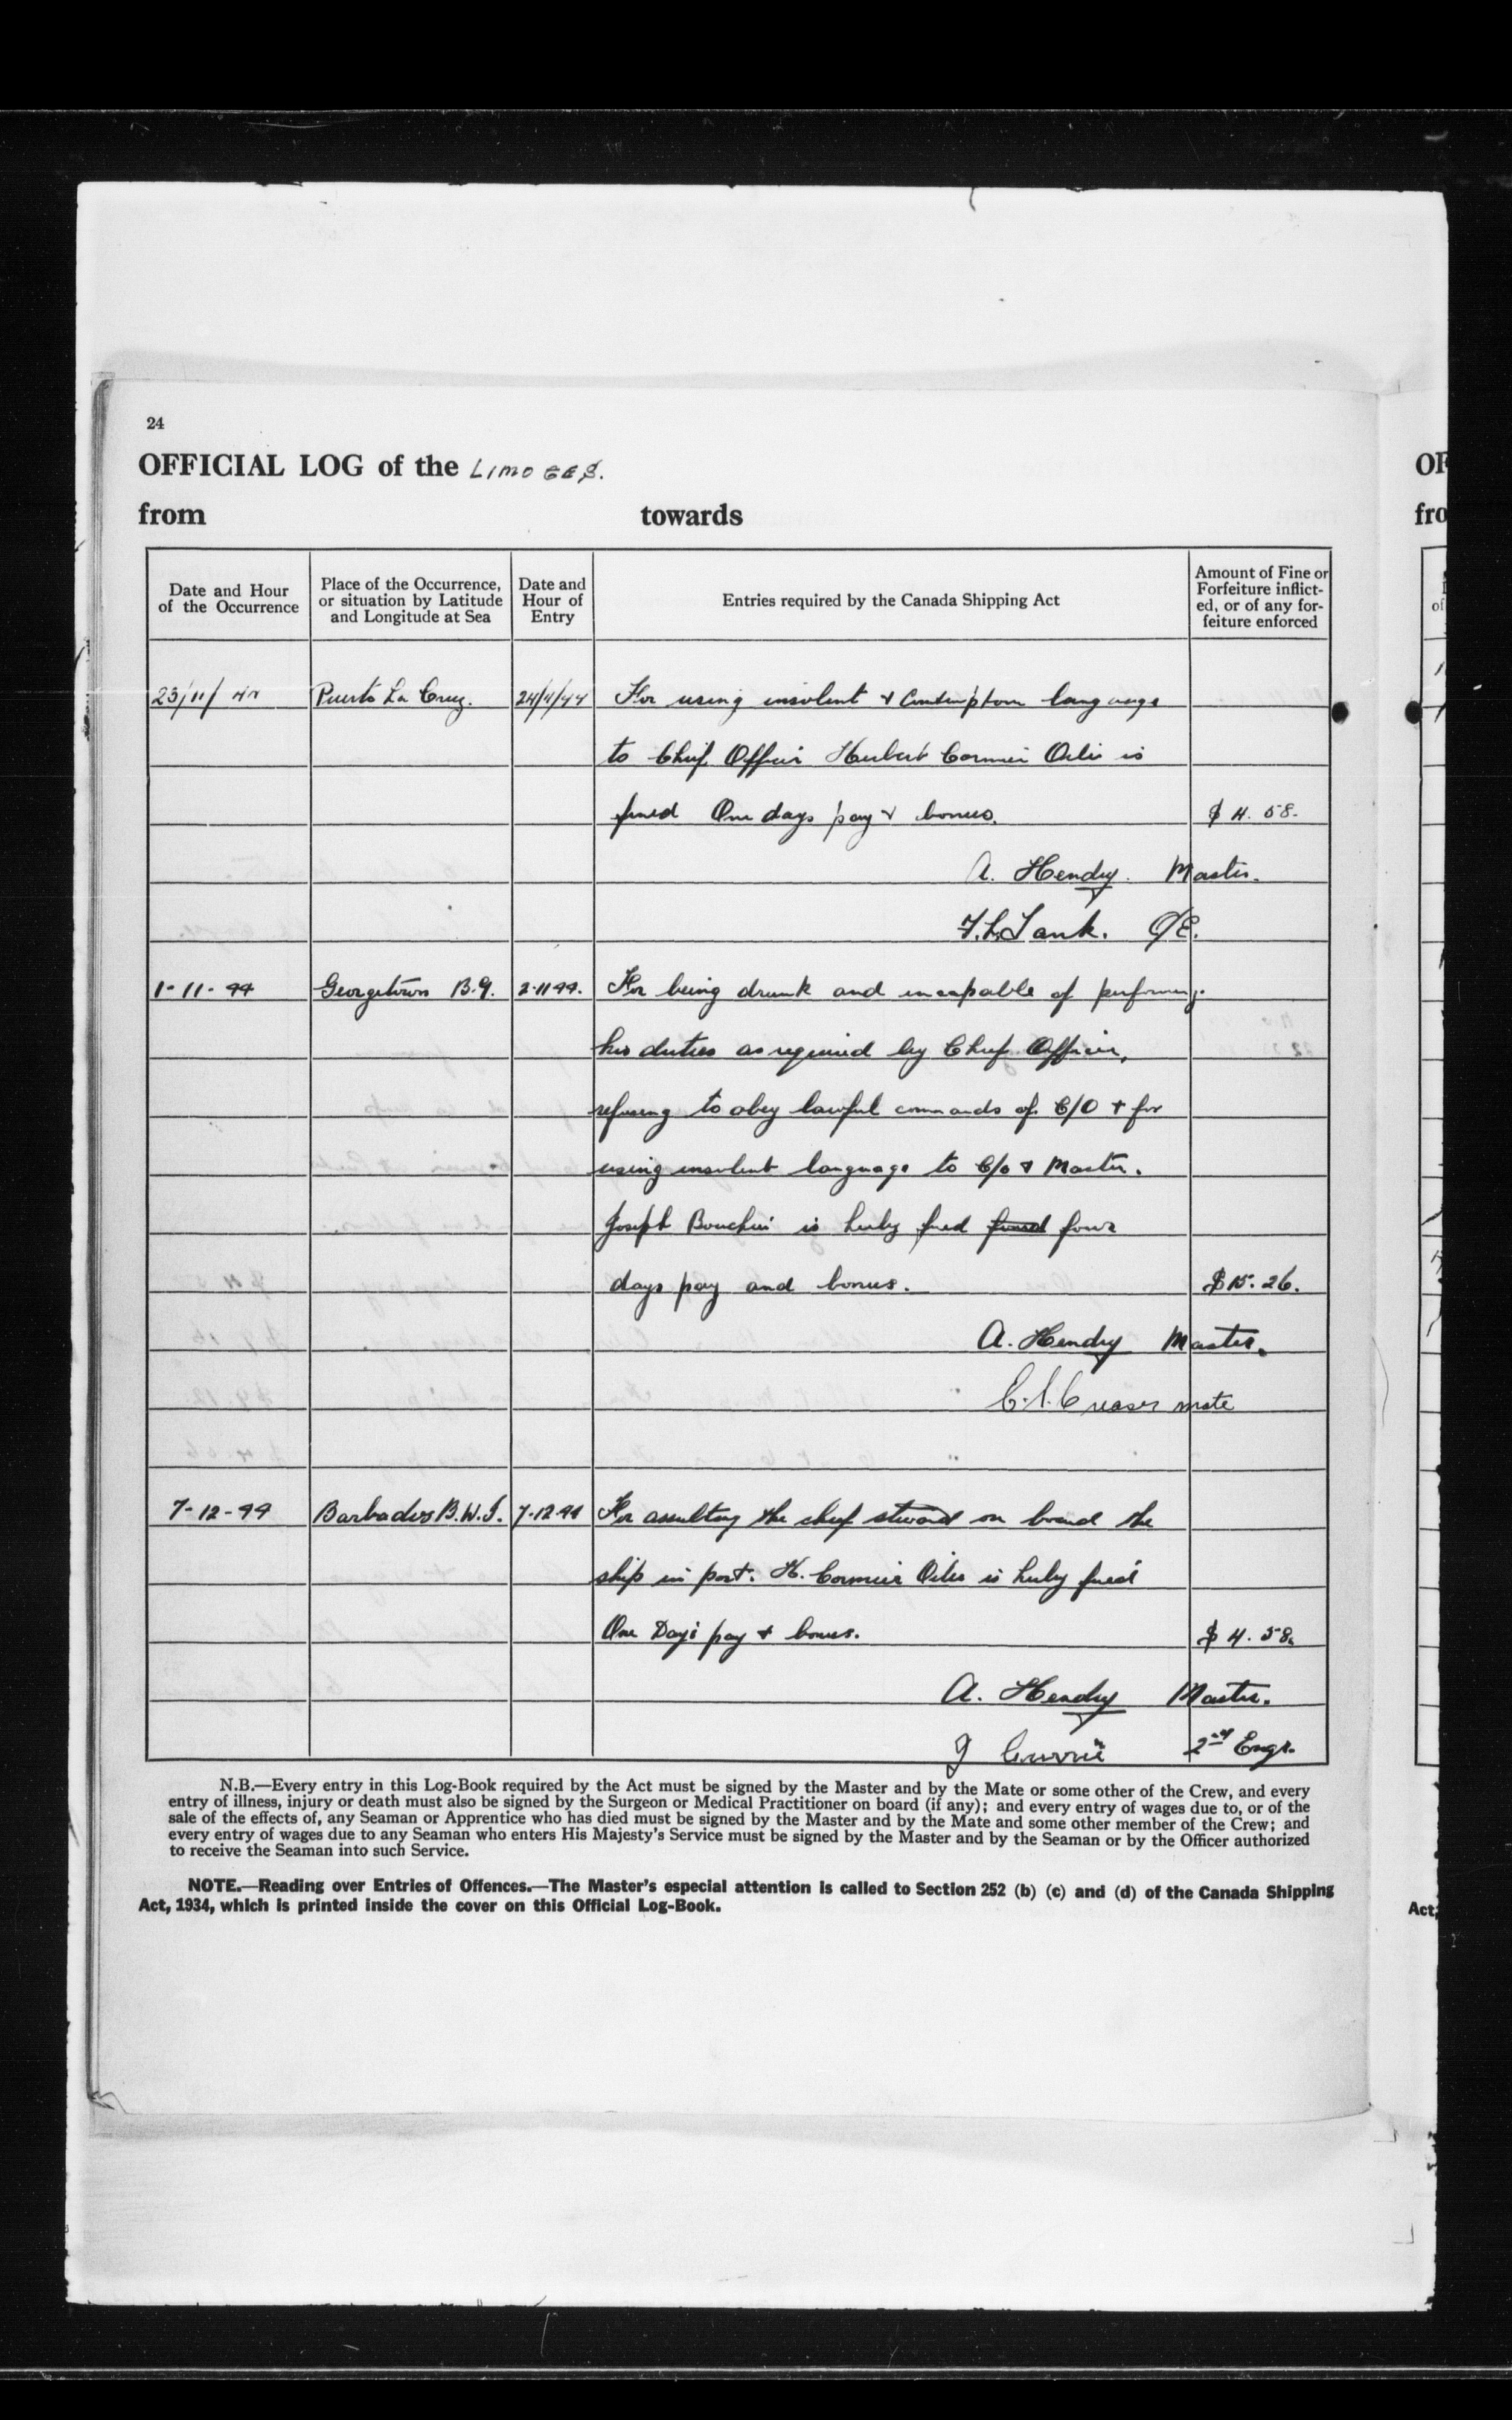 24
OFFICIAL LOG of the LIMOGES.
from towards
Date and Hour of the Occurrence
Place of the Occurrence, or situation by Latitude and Longitude at Sea
Date and Hour of Entry
Entries required by the Canada Shipping Act
Amount of Fine or Forfeiture inflicted, or of any forfeiture enforced
23/11/44 Puerto La Cruz. 24/11/44 For using insolent & Contemptous language
to Chief Officer Herbert Cormier Oiler is
fined One days pay & bonus. $ 4. 58.
A. Hendry. Master.
F.L. Tank. C/E.
1-11-44 Georgetown B.G. 2-11-44. For being drunk and incapable of performing
his duties as required by Chief Officer,
refusing to obey lawful commands of C/O + for
using insolent language to C/o & Master.
Joseph Bouchie is hereby fined four
days pay and bonus. $ 15. 26.
A. Hendry Master.
Creaser mate
7-12-44 Barbados B.W.I. 7-12-44 For assulting the chief steward on board the
ship in port. H. Cormier Oiler is hereby fined
One Days pay + bonus. $ 4. 58.
A. Hendry Master.
J Currie 2nd Engr.
N.B.—Every entry in this Log-Book required by the Act must be signed by the Master and by the Mate or some other of the Crew, and every
entry of illness, injury or death must also be signed by the Surgeon or Medical Practitioner on board (if any); and every entry of wages due to, or of the
sale of the effects of, any Seaman or Apprentice who has died must be signed by the Master and by the Mate and some other member of the Crew; and
every entry of wages due to any Seaman who enters His Majesty's Service must be signed by the Master and by the Seaman or by the Officer authorized
to receive the Seaman into such Service.
NOTE.—Reading over Entries of Offences.—The Master's especial attention is called to Section 252 (b) (c) and (d) of the Canada Shipping
Act, 1934, which is printed inside the cover on this Official Log-Book.